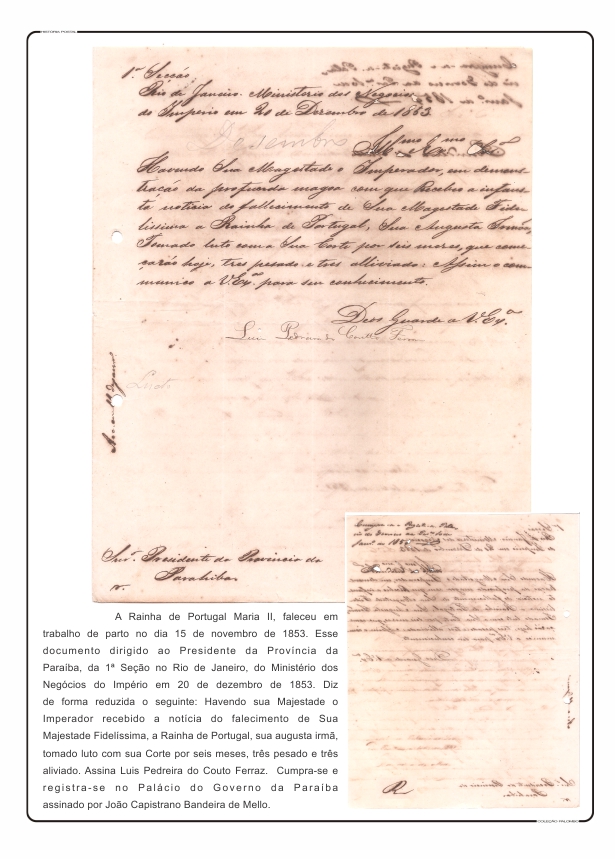 HISTORIA POSTAL
1ª Secção
Rio de Janeiro. Ministerio dos Negocios
do Imperio em 20 de Dezembro de 1853.
Dezembro
Illmo. e Exmo. Snr.
Havendo Sua Magestade o Imperador, em demons-
tração da profunda magoa com que Recebeo a infaus-
ta noticia do fallecimento de Sua Magestade Fide-
lissima a Rainha de Portugal, Sua Augusta Irmãa,
Tomado luto com a Sua Corte por seis mezes, que come-
çarão hoje, tres pesado e tres alliviado: Assim o com-
munico a V. Exª. para seu conhecimento.
Deos Guarde a V. Exª.
Luiz Pedreira do Couto Ferraz
Luto
Snr. Presidente da Provincia da
Parahiba
A Rainha de Portugal Maria II, faleceu em
trabalho de parto no dia 15 de novembro de 1853. Esse
documento dirigido ao Presidente da Província da
Paraíba, da 1ª Seção no Rio de Janeiro, do Ministério dos
Negócios do Império em 20 de dezembro de 1853. Diz
de forma reduzida o seguinte: Havendo sua Majestade o
Imperador recebido a notícia do falecimento de Sua
Majestade Fidelíssima, a Rainha de Portugal, sua augusta irmã,
tomado luto com sua Corte por seis meses, três pesado e três
aliviado. Assina Luis Pedreira do Couto Ferraz. Cumpra-se e
registra-se no Palácio do Governo da Paraíba
assinado por João Capistrano Bandeira de Mello.
Cumpra-se e Registe-se. Pala-
R
COLEÇÃO PALOMBO